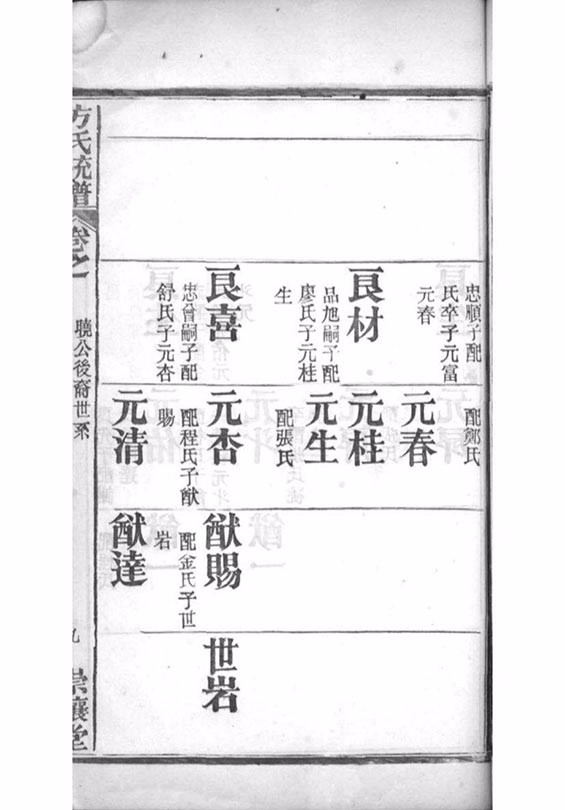 忠順子配
氏卒子元富
元春
良材
品旭嗣子配
廖氏子元桂
生
良喜
忠曾嗣子配
舒氏子元杏
配鄭氏
元春
元桂
元生
配張氏
元杏
配程氏子猷
賜
元清
猷賜
配金氏子世
岩
猷達
世岩
方氏統譜
卷之一
曉公後裔世系
九
崇讓堂